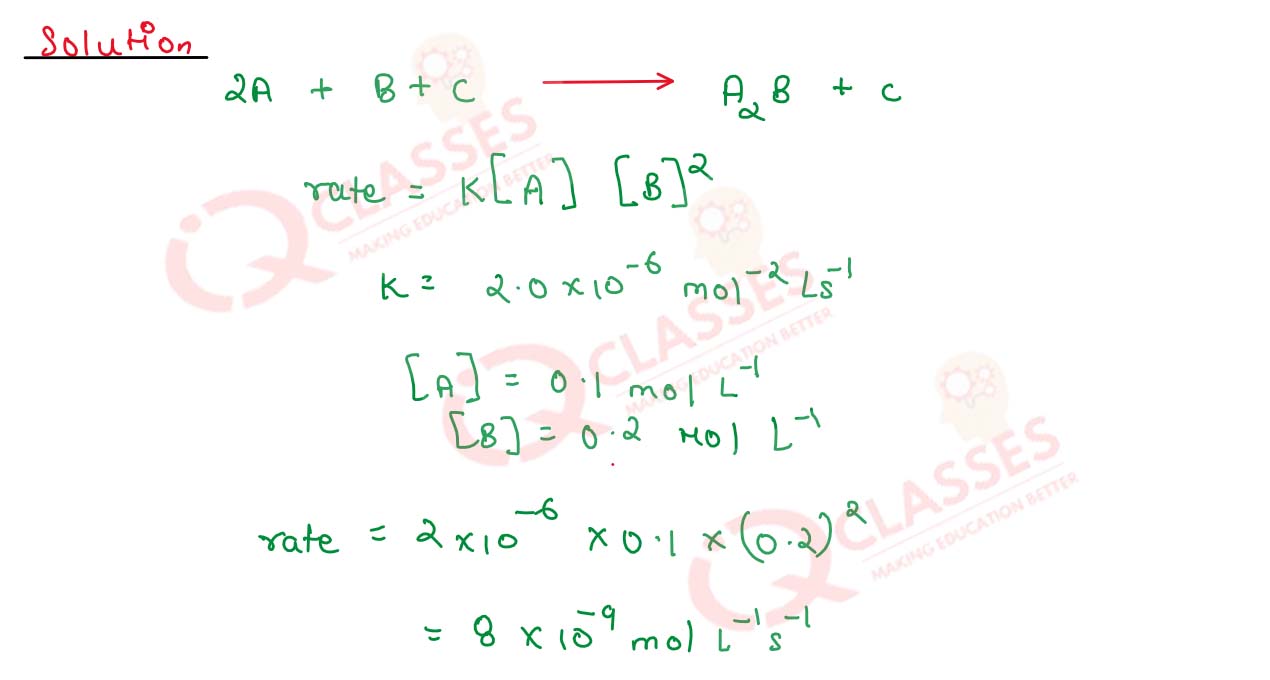 Solution
2A + B + C ⟶ A₂B + C
rate = K[A] [B]²
K = 2.0 × 10⁻⁶ mol⁻² L s⁻¹
[A] = 0.1 mol L⁻¹
[B] = 0.2 mol L⁻¹
rate = 2 × 10⁻⁶ × 0.1 × (0.2)²
= 8 × 10⁻⁹ mol L⁻¹ s⁻¹
IQ CLASSES
MAKING EDUCATION BETTER
IQ CLASSES
MAKING EDUCATION BETTER
IQ CLASSES
MAKING EDUCATION BETTER